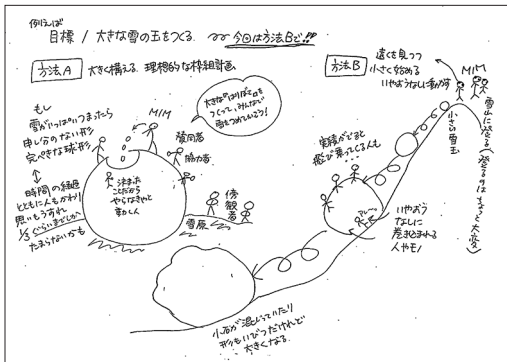 例えば
目標 / 大きな雪の玉をつくる. 今回は方法Bで!!
方法A 大きく構える. 理想的な枠組計画.
もし
雪がいっぱいつまったら
申し分のない形
完ぺきな球形
時間の経過
とともに人もかわり
思いもうすれ
1/3ぐらいまでしか
たまらないかも
MIM
大きなはりぼてを
つくって、みんなで
雪をつめていこう!
賛同者
協力者
決まった
ことだから
やらなきゃと
動かく人
傍観者
雪原
方法B
遠くを見つつ
小さく始める
いやおうなしに転がす
MIM
小さい雪玉
雪山に登る(登るのはちょっと大変)
実績がでると
飛び乗ってくる人も
・・・・
アレー
いやおう
なしに
巻き込まれる
人やモノ
小石が混じっていたり
形もいびつだけれど
大きくなる.